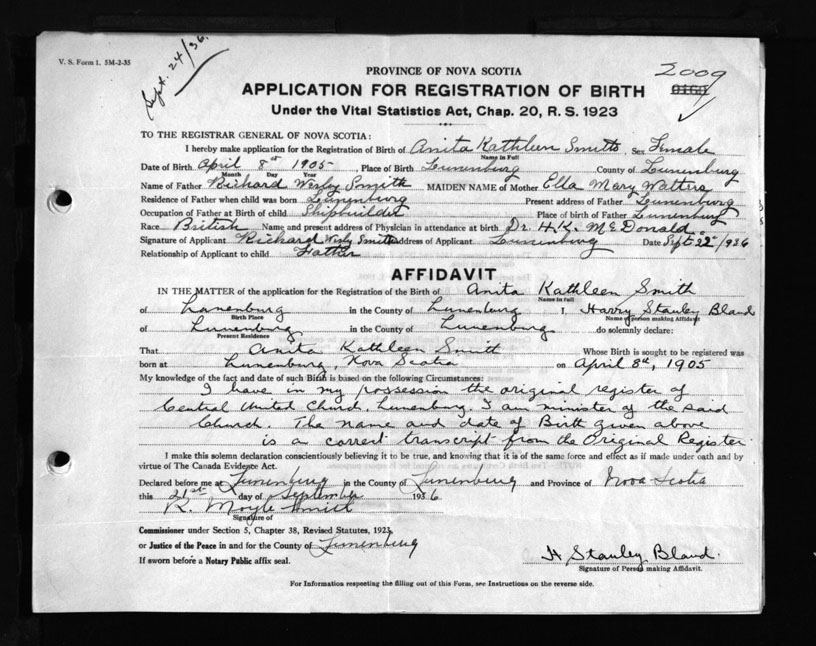 V. S. Form 1. 5M-2-35
Sept. 24/36.
PROVINCE OF NOVA SCOTIA
2009
APPLICATION FOR REGISTRATION OF BIRTH
Under the Vital Statistics Act, Chap. 20, R. S. 1923
TO THE REGISTRAR GENERAL OF NOVA SCOTIA:
I hereby make application for the Registration of Birth of Anita Kathleen Smith, Sex Female
Name in Full
Date of Birth April 8th 1905, Place of Birth Lunenburg County of Lunenburg
Month Day Year
Name of Father Richard Wesly Smith MAIDEN NAME of Mother Ella Mary Walters
Residence of Father when child was born Lunenburg Present address of Father Lunenburg
Occupation of Father at Birth of child Shipbuilder Place of birth of Father Lunenburg
Race British Name and present address of Physician in attendance at birth Dr. H.K. McDonald
Signature of Applicant Richard Wesly Smith Address of Applicant Lunenburg Date Sept 22 1936
Relationship of Applicant to child Father
AFFIDAVIT
IN THE MATTER of the application for the Registration of the Birth of Anita Kathleen Smith
Name in Full
of Lunenburg in the County of Lunenburg I, Harry Stanley Bland
Birth Place Name of person making Affidavit
of Lunenburg in the County of Lunenburg do solemnly declare:
Present Residence
That Anita Kathleen Smith Whose Birth is sought to be registered was
born at Lunenburg, Nova Scotia on April 8th, 1905
My knowledge of the fact and date of such Birth is based on the following Circumstances:
I have in my possession the original register of
Central United Church, Lunenburg. I am minister of the said
Church. The name and date of Birth given above
is a correct transcript from the Original Register
I make this solemn declaration conscientiously believing it to be true, and knowing that it is of the same force and effect as if made under oath and by
virtue of The Canada Evidence Act.
Declared before me at Lunenburg in the County of Lunenburg and Province of Nova Scotia
this 21st day of September 1936
R. Moyle Smith
Signature of
Commissioner under Section 5, Chapter 38, Revised Statutes, 1923,
or Justice of the Peace in and for the County of Lunenburg
If sworn before a Notary Public affix seal.
H Stanley Bland.
Signature of Person making Affidavit.
For Information respecting the filling out of this Form, see Instructions on the reverse side.